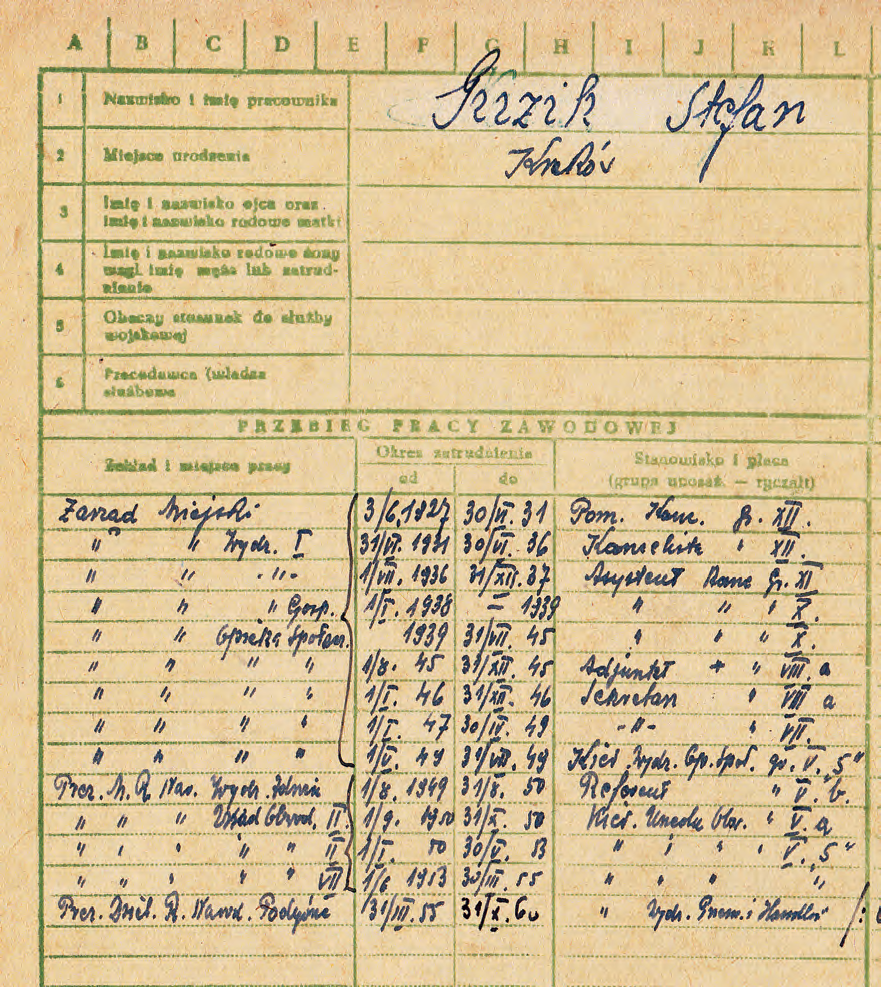 A B C D E F G H I J K L
1 Nazwisko i imię pracownika Grzik Stefan
2 Miejsce urodzenia Kraków
3 Imię i nazwisko ojca oraz
imię i nazwisko rodowe matki
4 Imię i nazwisko rodowe żony
wzgl. imię męża lub zatrud-
nienie
5 Obecny stosunek do służby
wojskowej
6 Pracodawca (władza
służbowa
PRZEBIEG PRACY ZAWODOWEJ
Zakład i miejsce pracy Okres zatrudnienia Stanowisko i płaca
od do (grupa uposaż. — ryczałt)
Zarząd Miejski 3/6.1927 30/VI. 31 Pom. Kanc. gr. XII.
" " Wydz. I 31/VI. 1931 30/VI. 36 Kancelista " XII.
" " -"- 1/VII. 1936 31/XII. 37 Asystent Kanc Gr. XI
" " " Gosp. 1/I. 1938 = 1939 " " " X.
" " Opieka Społecz. 1939 31/VII. 45 " " " X.
" " " " 1/8. 45 31/XII. 45 Adjunkt + " VIII. a
" " " " 1/I. 46 31/XII. 46 Sekretarz " VIII a
" " " " 1/I. 47 30/IV. 49 -"- " VII.
" " " " 1/V. 49 31/VII. 49 Kier. Wydz. Op. Społ. gr. V. „5"
Prez. M. R. Nar. Wydz. 1/8. 1949 31/8. 50 Referent " V. b.
" " " Urząd Obwod. II 1/9. 1950 31/X. 50 Kier. Urzędu Obw. " V. a
" " " " " II 1/I. 50 30/V. 53 " " " " V. „5"
" " " " " VII 1/6 1953 30/III. 55 " " " "
Prez. Dziel. R. Narod. Podgórze 31/III. 55 31/X. 60 " Wydz. Przem. i Handlu